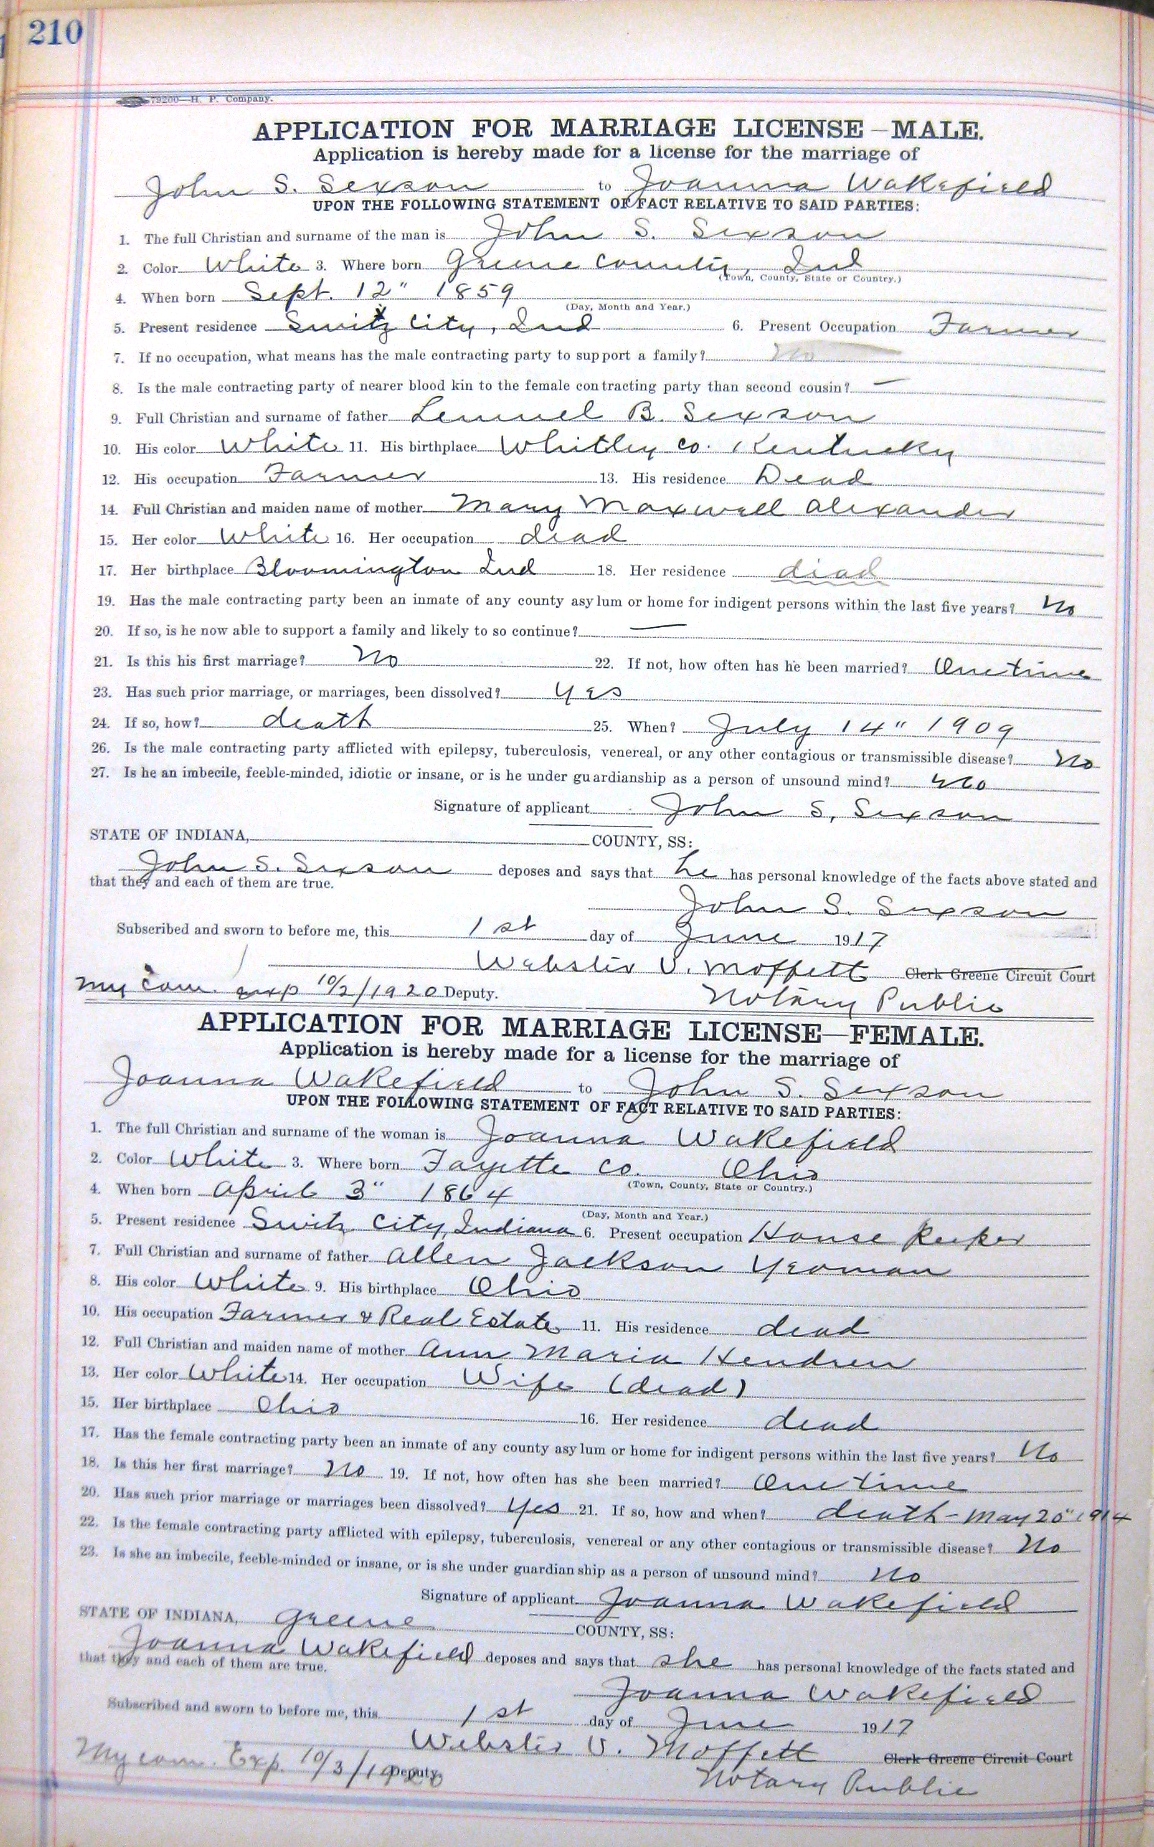 210
79200—H. P. Company.
APPLICATION FOR MARRIAGE LICENSE—MALE.
Application is hereby made for a license for the marriage of
John S. Sexson to Joanna Wakefield
UPON THE FOLLOWING STATEMENT OF FACT RELATIVE TO SAID PARTIES:
1. The full Christian and surname of the man is John S. Sexson
2. Color White 3. Where born Greene County, Ind
(Town, County, State or Country.)
4. When born Sept. 12" 1859
(Day, Month and Year.)
5. Present residence Switz City, Ind 6. Present Occupation Farmer
7. If no occupation, what means has the male contracting party to support a family? No
8. Is the male contracting party of nearer blood kin to the female contracting party than second cousin? —
9. Full Christian and surname of father Lemuel B. Sexson
10. His color White 11. His birthplace Whitley Co. Kentucky
12. His occupation Farmer 13. His residence Dead
14. Full Christian and maiden name of mother Mary Maxwell Alexander
15. Her color White 16. Her occupation dead
17. Her birthplace Bloomington Ind 18. Her residence dead
19. Has the male contracting party been an inmate of any county asylum or home for indigent persons within the last five years? No
20. If so, is he now able to support a family and likely to so continue? —
21. Is this his first marriage? No 22. If not, how often has he been married? One time
23. Has such prior marriage, or marriages, been dissolved? Yes
24. If so, how? death 25. When? July 14" 1909
26. Is the male contracting party afflicted with epilepsy, tuberculosis, venereal, or any other contagious or transmissible disease? No
27. Is he an imbecile, feeble-minded, idiotic or insane, or is he under guardianship as a person of unsound mind? No
Signature of applicant John S. Sexson
STATE OF INDIANA, COUNTY, SS:
John S. Sexson deposes and says that he has personal knowledge of the facts above stated and
that they and each of them are true.
John S. Sexson
Subscribed and sworn to before me, this 1st day of June 1917
Webster V. Moffett Clerk Greene Circuit Court
My Com. exp 10/3/1920 Deputy. Notary Public
APPLICATION FOR MARRIAGE LICENSE—FEMALE.
Application is hereby made for a license for the marriage of
Joanna Wakefield to John S. Sexson
UPON THE FOLLOWING STATEMENT OF FACT RELATIVE TO SAID PARTIES:
1. The full Christian and surname of the woman is Joanna Wakefield
2. Color White 3. Where born Fayette Co. Ohio
(Town, County, State or Country.)
4. When born April 3" 1864
(Day, Month and Year.)
5. Present residence Switz City, Indiana 6. Present occupation House Keeper
7. Full Christian and surname of father Allen Jackson Yeoman
8. His color White 9. His birthplace Ohio
10. His occupation Farmer & Real Estate 11. His residence dead
12. Full Christian and maiden name of mother Ann Maria Hendren
13. Her color White 14. Her occupation Wife (dead)
15. Her birthplace Ohio 16. Her residence dead
17. Has the female contracting party been an inmate of any county asylum or home for indigent persons within the last five years? No
18. Is this her first marriage? No 19. If not, how often has she been married? One time
20. Has such prior marriage or marriages been dissolved? Yes 21. If so, how and when? death - May 20" 1914
22. Is the female contracting party afflicted with epilepsy, tuberculosis, venereal or any other contagious or transmissible disease? No
23. Is she an imbecile, feeble-minded or insane, or is she under guardianship as a person of unsound mind? No
Signature of applicant Joanna Wakefield
STATE OF INDIANA, Greene COUNTY, SS:
Joanna Wakefield deposes and says that she has personal knowledge of the facts stated and
that they and each of them are true.
Joanna Wakefield
Subscribed and sworn to before me, this 1st day of June 1917
Webster V. Moffett Clerk Greene Circuit Court
My com. Exp. 10/3/1920 Deputy. Notary Public